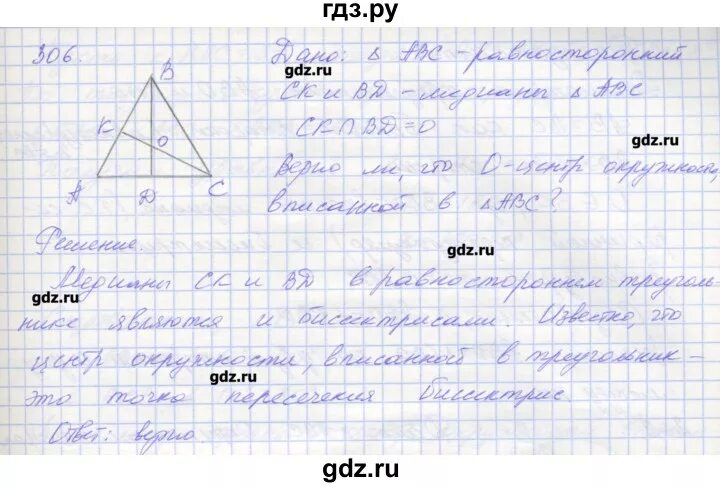 гдз.ру
306.
Дано: △ ABC - равносторонний
gdz.ru
gdz.ru
CK и BD - медианы △ ABC
CK∩BD=O
gdz.ru
Верно ли, что O-центр окружности,
вписанной в △ABC?
B
K
O
A
D
C
Решение.
gdz.ru
Медианы CK и BD в равностороннем треуголь-
gdz.ru
нике являются и биссектрисами. Известно, что
центр окружности, вписанной в треугольник -
gdz.ru
это точка пересечения биссектрис.
gdz.ru
Ответ: верно.
gdz.ru